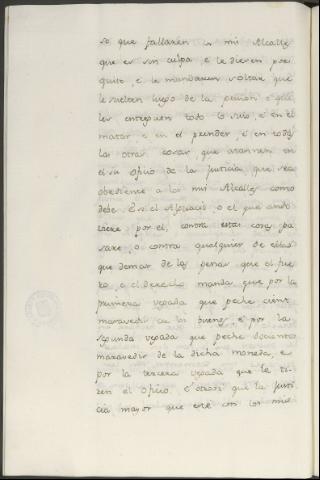 so que fallaren los mi Alcalles
que es sin culpa, e le dieren por
quito, e le mandaren soltar, que
le suelten luego de la prision, e que
les entreguen todo lo suio, e en el
matar, e en el prender, e en todas
las otras cosas que atannen en
el su oficio de la Justicia, que sea
obediente a los mis Alcalles como
debe. E si el Alguacil, o el que ando
biere por el, contra estas cosas pa
sare, o contra qualquier de ellas
que demas de las penas que el fue
ro, e el derecho manda que por la
primera vegada que peche cient
maravedis de los buenos, e por la
segunda vegada que peche docientos
maravedis de la dicha moneda, e
por la tercera vegada que le ti
ren el oficio. E otrosi que la Justi
cia mayor que esté con los mis